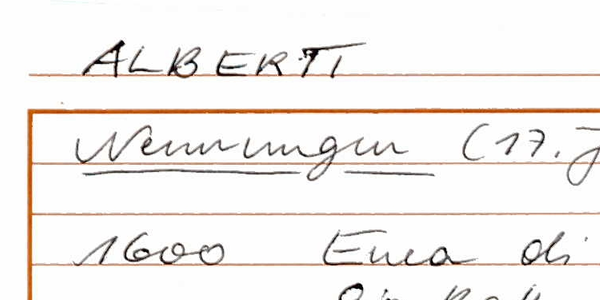 ALBERTI
Nennungen (17. J
1600 Enea di